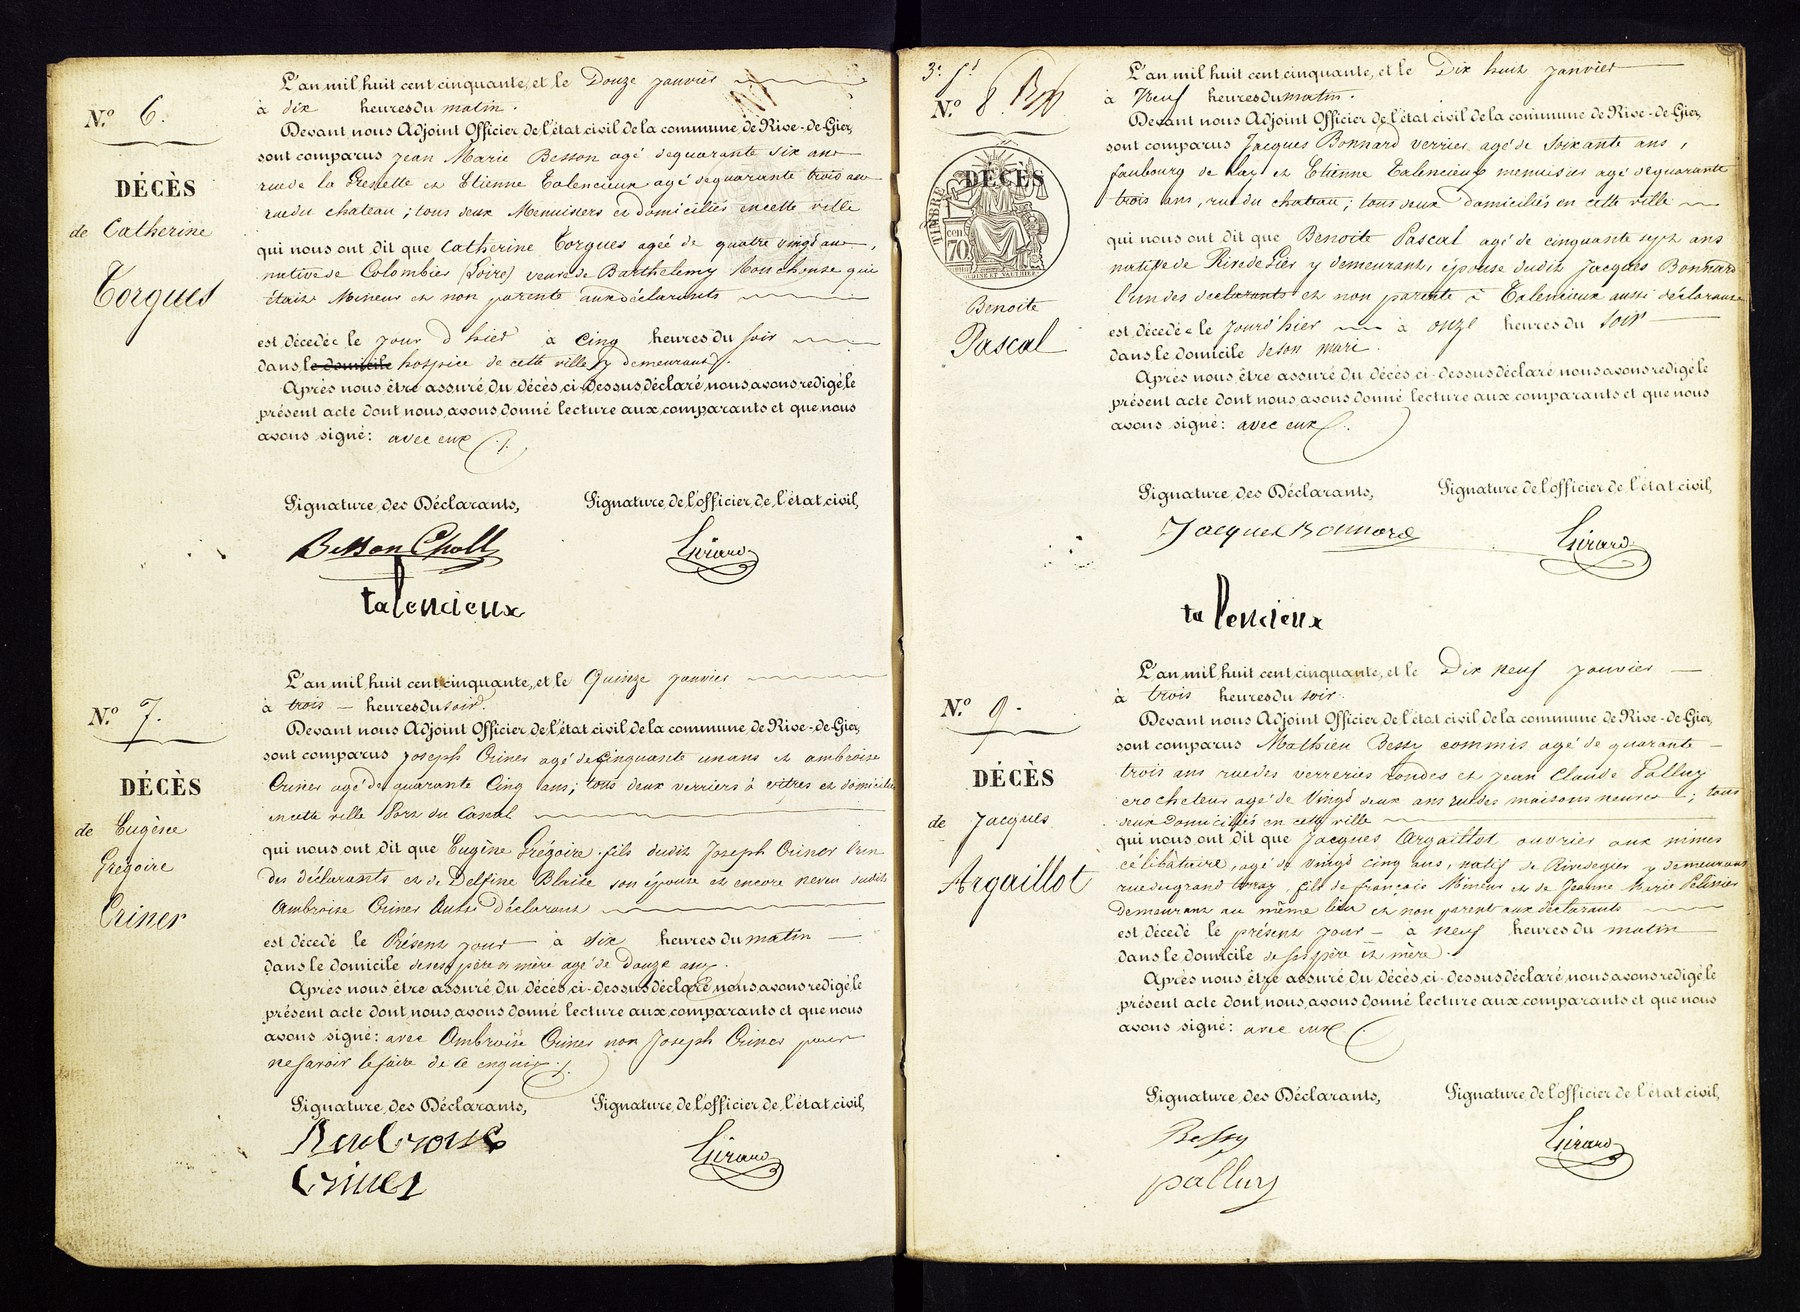 N.º 6.
DÉCÈS
de Catherine
Torgues
L'an mil huit cent cinquante, et le Douze janvier
à dix heures du matin.
Devant nous Adjoint Officier de l'état civil de la commune de Rive-de-Gier,
sont comparus Jean Marie Besson agé de quarante six ans
rue de la Grenette et Etienne Talencieux agé de quarante trois ans
rue du chateau ; tous deux Menuisiers et domiciliés en cette ville
qui nous ont dit que Catherine Torgues agée de quatre vingt ans,
native de Colombier (Loire) veuve de Barthelemy qui
était Mineur et non parente aux déclarants
est décédée le jour d'hier à Cinq heures du soir
dans le domicile hospice de cette ville y demeurant.
Après nous être assuré du décès, ci-dessus déclaré, nous avons redigé le
présent acte dont nous avons donné lecture aux comparants et que nous
avons signé : avec eux
Signature des Déclarants,
Signature de l'officier de l'état civil,
Besson Choll
Girard
talencieux
N.º 7.
DÉCÈS
de Eugène
Grégoire
Criner
L'an mil huit cent cinquante, et le Quinze janvier
à trois heures du soir.
Devant nous Adjoint Officier de l'état civil de la commune de Rive-de-Gier,
sont comparus Joseph Criner agé de cinquante un ans et ambroise
Criner agé de quarante Cinq ans ; tous deux verriers à vitres et domiciliés
en cette ville Port du Canal
qui nous ont dit que Eugène Grégoire fils dudit Joseph Criner l'un
des déclarants et de Delfine Blaise son épouse et encore neveu dudit
Ambroise Criner Aussi déclarant
est décédé le Présent jour à six heures du matin
dans le domicile de ses père et mère agé de Douze ans.
Après nous être assuré du décès, ci-dessus déclaré, nous avons redigé le
présent acte dont nous avons donné lecture aux comparants et que nous
avons signé : avec Ambroise Criner non Joseph Criner pour
ne savoir le faire de ce enquis.
Signature des Déclarants,
Signature de l'officier de l'état civil,
Girard
Criner
3.e f.t
N.º 8
DÉCÈS
TIMBRE
70
Benoite
Pascal
L'an mil huit cent cinquante, et le Dix huit janvier
à Neuf heures du matin.
Devant nous Adjoint Officier de l'état civil de la commune de Rive-de-Gier,
sont comparus Jacques Bonnard verrier agé de soixante ans,
faubourg de Lay et Etienne Talencieux menuisier agé de quarante
trois ans, rue du chateau ; tous deux domiciliés en cette ville
qui nous ont dit que Benoite Pascal agé de cinquante sept ans
native de Rive de Gier y demeurant, épouse dudit Jacques Bonnard
l'un des déclarants et non parente à Talencieux aussi déclarant
est décédée le jour d'hier à onze heures du soir
dans le domicile de son mari.
Après nous être assuré du décès, ci-dessus déclaré nous avons redigé le
présent acte dont nous avons donné lecture aux comparants et que nous
avons signé : avec eux
Signature des Déclarants,
Signature de l'officier de l'état civil,
Jacques Bonnard
Girard
talencieux
N.º 9.
DÉCÈS
de Jacques
Argaillot
L'an mil huit cent cinquante, et le Dix neuf janvier
à trois heures du soir.
Devant nous Adjoint Officier de l'état civil de la commune de Rive-de-Gier,
sont comparus Mathieu Bessy commis agé de quarante
trois ans rue des verreries rondes et Jean Claude Palluy
crocheteur agé de Vingt deux ans rue des maisons neuves ; tous
deux domiciliés en cette ville
qui nous ont dit que Jacques Argaillot ouvrier aux mines
célibataire, agé de vingt cinq ans, natif de Rivedegier y demeurant
rue du grand fils de françois Mineur et de Jeanne Marie Pelissier
demeurant au même lieu et non parent aux déclarants
est décédé le présent jour à neuf heures du matin
dans le domicile de ses père et mère.
Après nous être assuré du décès, ci-dessus déclaré, nous avons redigé le
présent acte dont nous avons donné lecture aux comparants et que nous
avons signé : avec eux
Signature des Déclarants,
Signature de l'officier de l'état civil,
Bessy
Girard
palluy